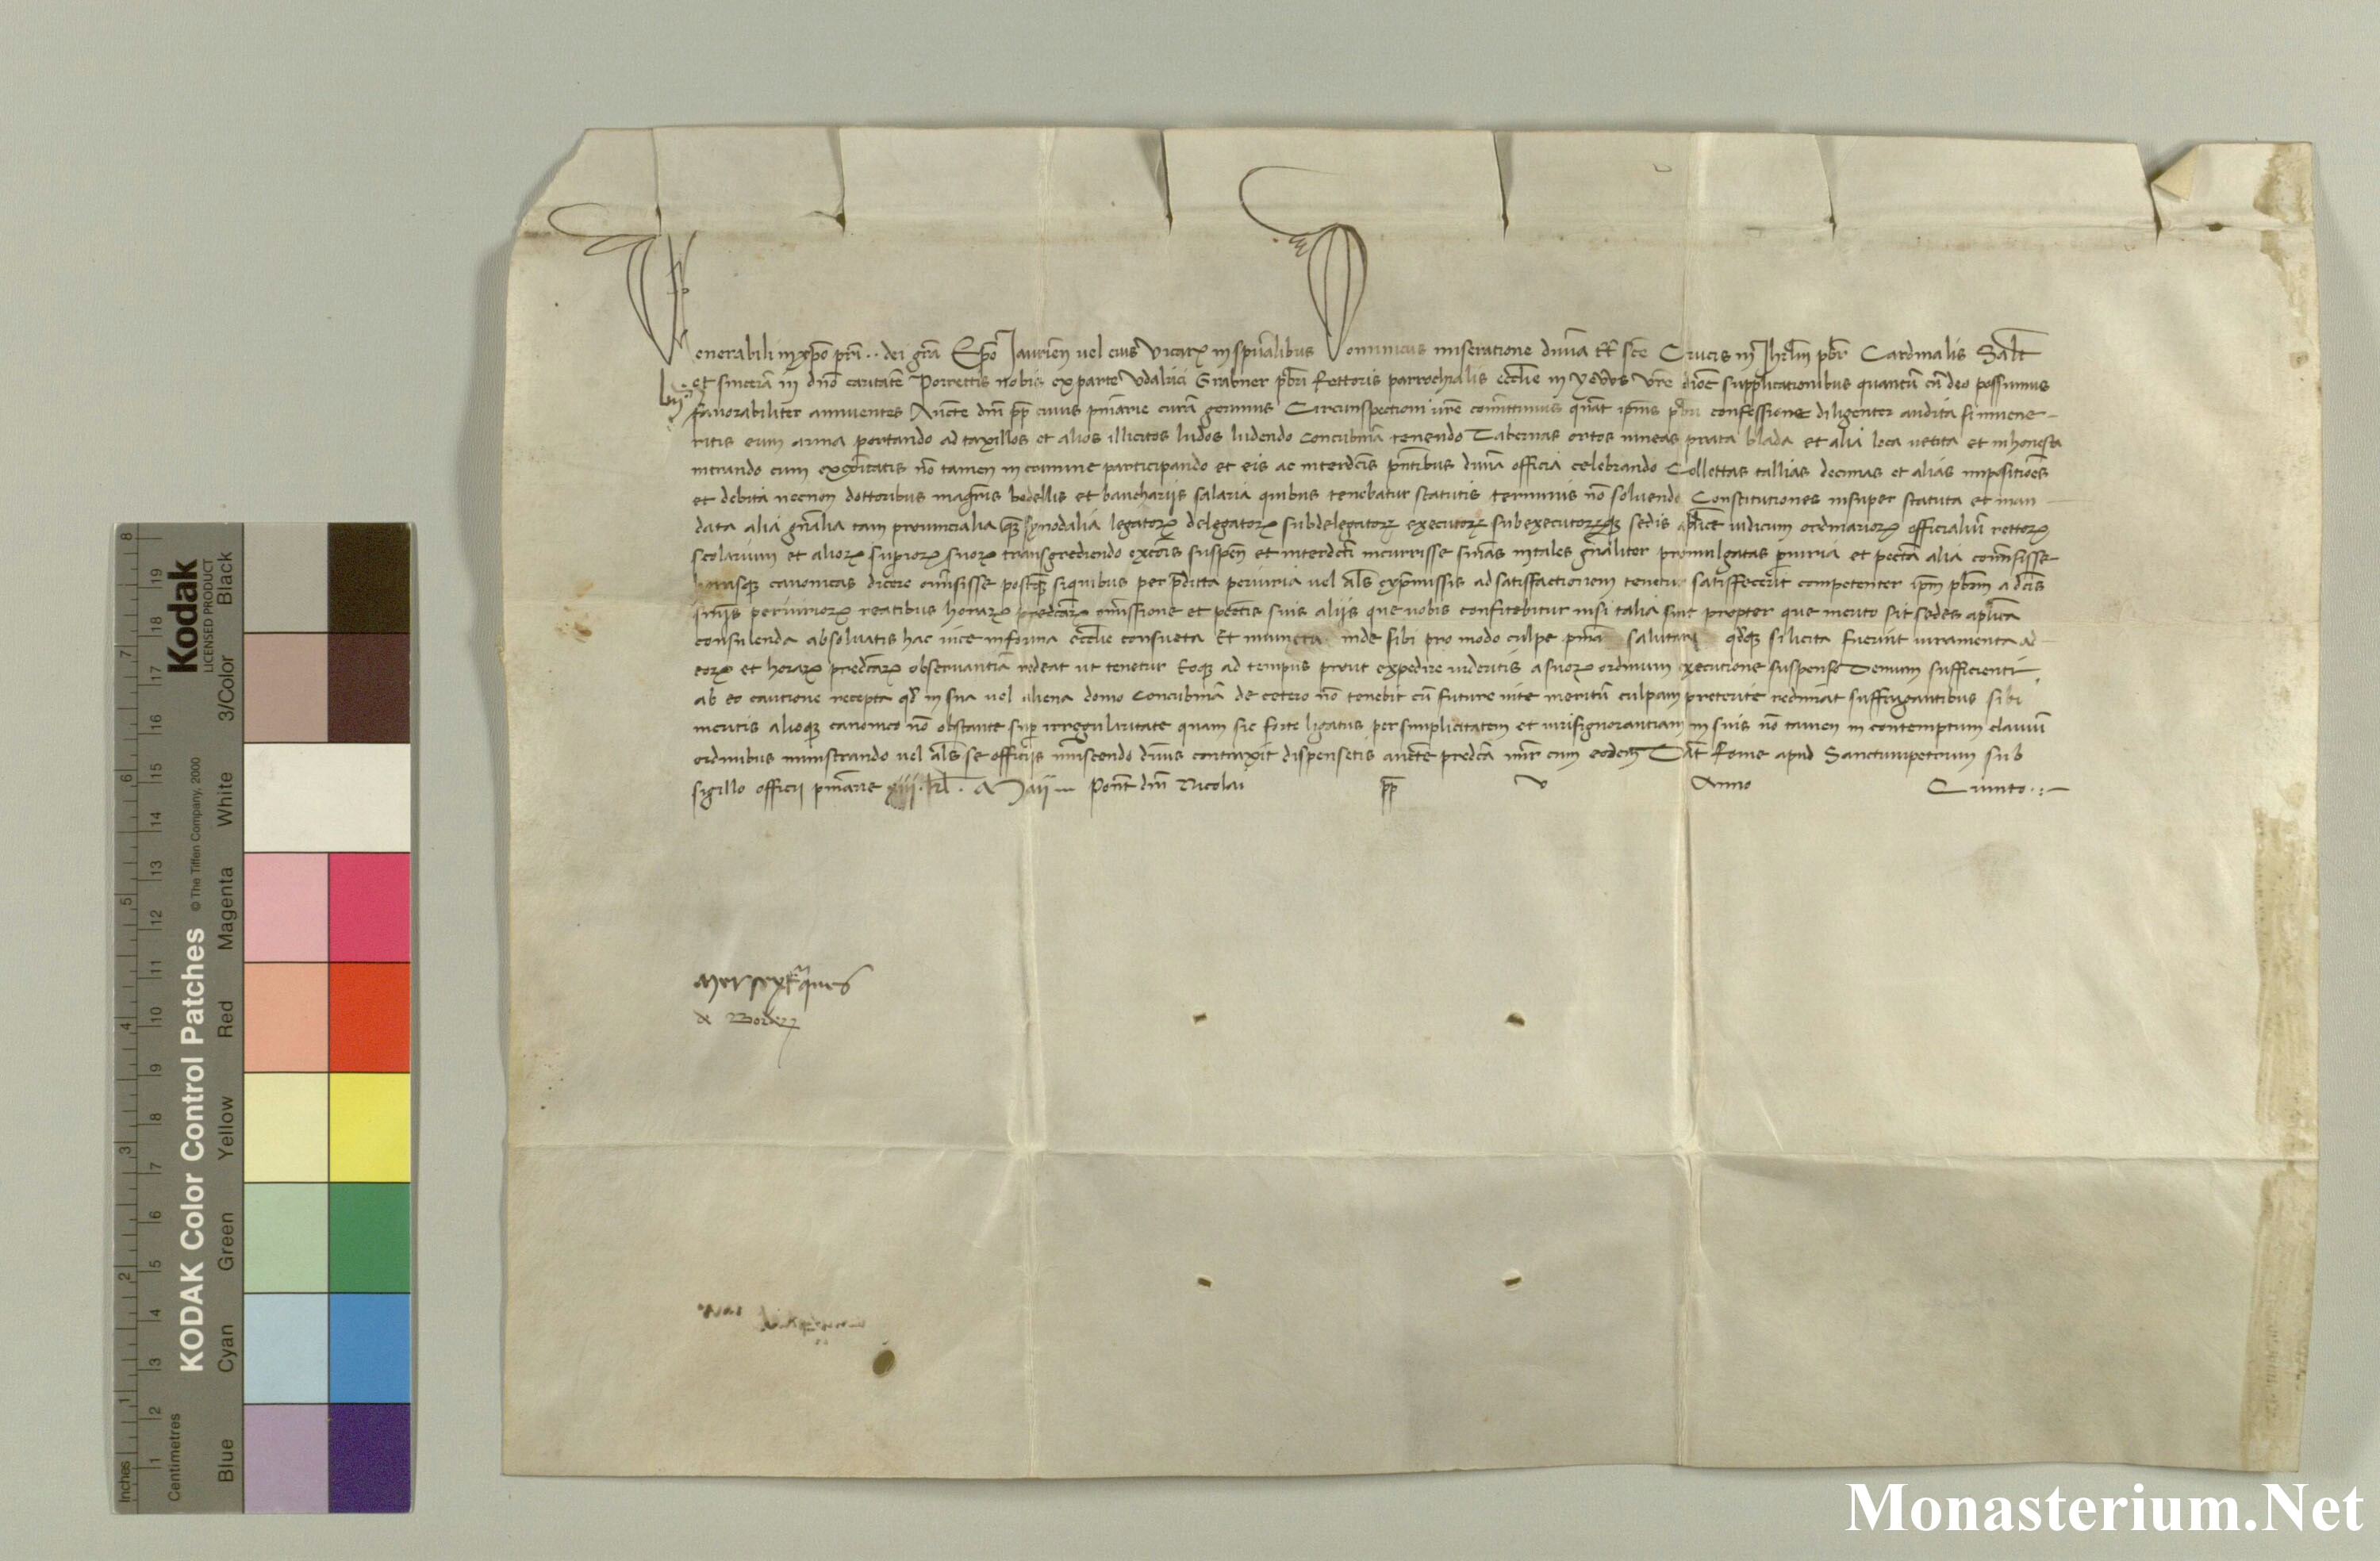 Venerabili in xpo pri .. dei gra Epo Jaurien vel eius vicario in spualibus Dominicus miseratione divina tt sce Crucis in Jhrlm pbr Cardinalis Salt
et sincera in dno caritate Porrectis nobis ex parte Udalrici Grabner pbri Rectoris parrochialis ecclie in vre dioc supplicationibus quantu cu deo possumus
favorabiliter annuentes Aucte dni pp cuius pniarie cura gerimus Circunspectioni vre comittimus qnat ipius pbri confessione diligenter audita si invene-
ritis eum arma portando ad taxillos et alios illicitos ludos ludendo Concubina tenendo Tabernas ortos vineas prata blada et alia loca vetita et inhonesta
intrando cum excoicatis no tamen in crimine participando et eis ac interdcis pntibus divina officia celebrando Collectas tallias decimas et alias impositioes
et debita necnon doctoribus magris bedellis et banchariis salaria quibus tenebatur statutis terminis no solvendo Constitutiones insuper statuta et man
data alia gnalia tam provincialia qz synodalia legatorz delegatorz subdelegatorz executorz subexecutorzqz sedis aplice iudicum ordinariorz officialiu rectorz
scolarium et aliorz supiorz suorz transgrediendo excois suspen et interdcti incurrisse snias in tales gnaliter promulgatas piuria et pecta alia comisisse
horasqz canonicas dicere omisisse postqz siquibus per pdicta periuria vel als expmissis ad satisfactionem tenetur satisfecerit competenter ipm pbrm a dcis
sniis periuriorz reatibus horarz predcarz omissione et pectis suis aliis que vobis confitebitur nisi talia sint propter que merito sit sedes aplica
consulenda absolvatis hac vice in forma ecclie consueta Et iniuncta inde sibi pro modo culpe pnia salutari qdqz si licita fuerint iuramenta ad
eorz et horarz predcarz observantia redeat ut tenetur Eoqz ad tempus prout expedire videritis a suorz ordinum executione suspenso Demum sufficienti
ab eo cautione recepta qd in sua vel aliena domo Concubina de cetero no tenebit cu future vite meritu culpam preterite redimat suffragantibus sibi
meritis alioqz canonico no obstante sup irregularitate quam sic forte ligatus per simplicitatem et iuris ignorantiam in suis no tamen in contemptum clavium
ordinibus ministrando vel als se officiis imiscendo divis contraxit dispensetis aucte predca mir cum eodem Dat Rome apud Sanctumpetrum sub
sigillo officii pniarie xiii kl Maii Pont dni Nicolai pp v Anno Quinto